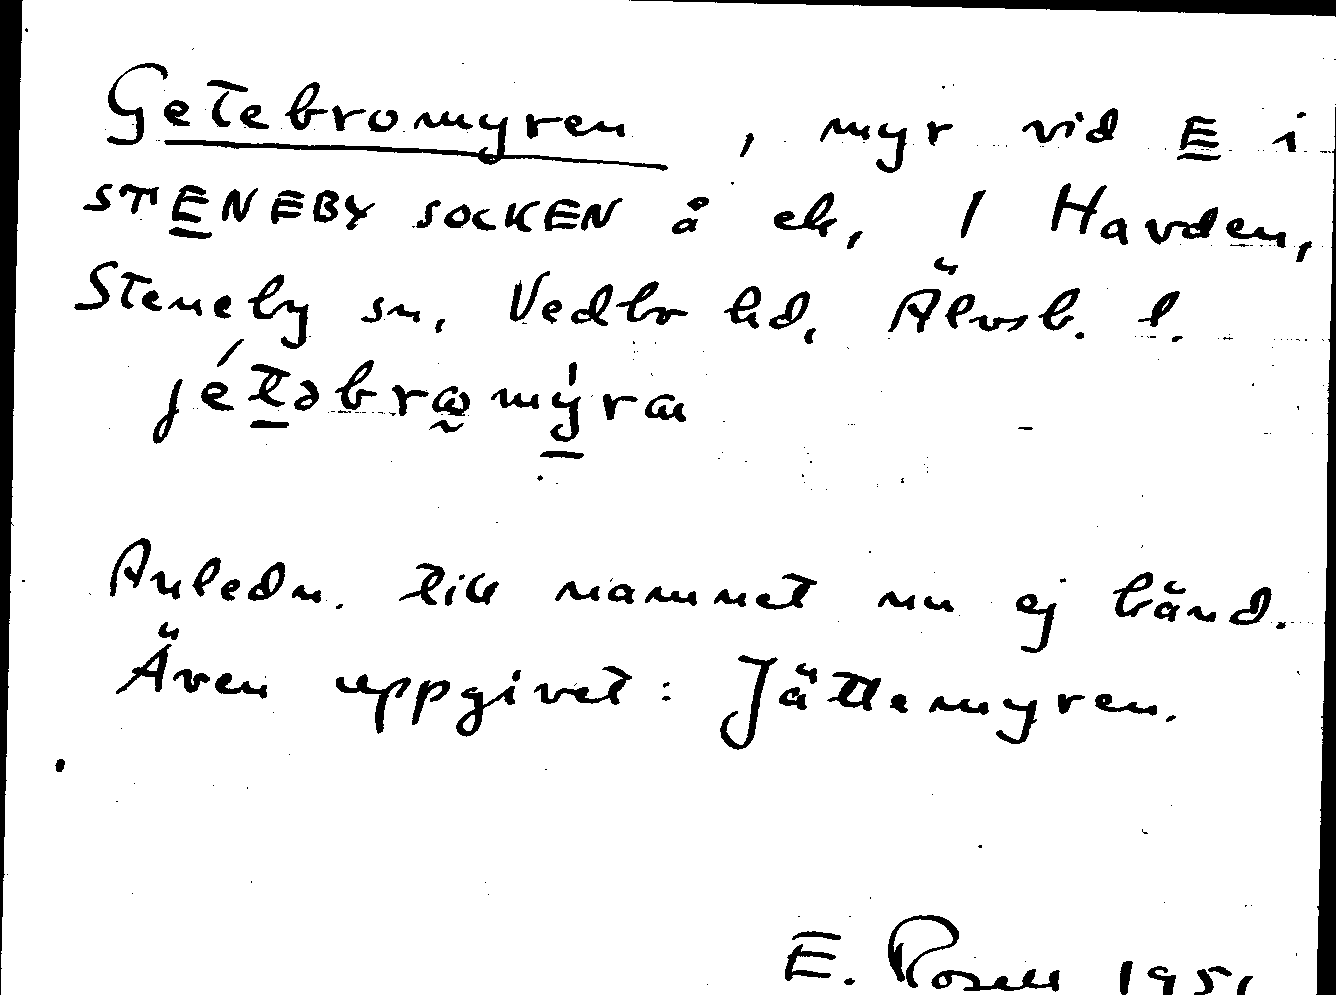 Getebromyren, myr vid E i
STENEBY SOCKEN å ek, 1 Havden,
Steneby sn, Vedbo hd, Älvsb. l.
jétəbrωmýra
Anledn. till namnet nu ej känd.
Även uppgivet: Jättemyren.
E. Rosell 1951